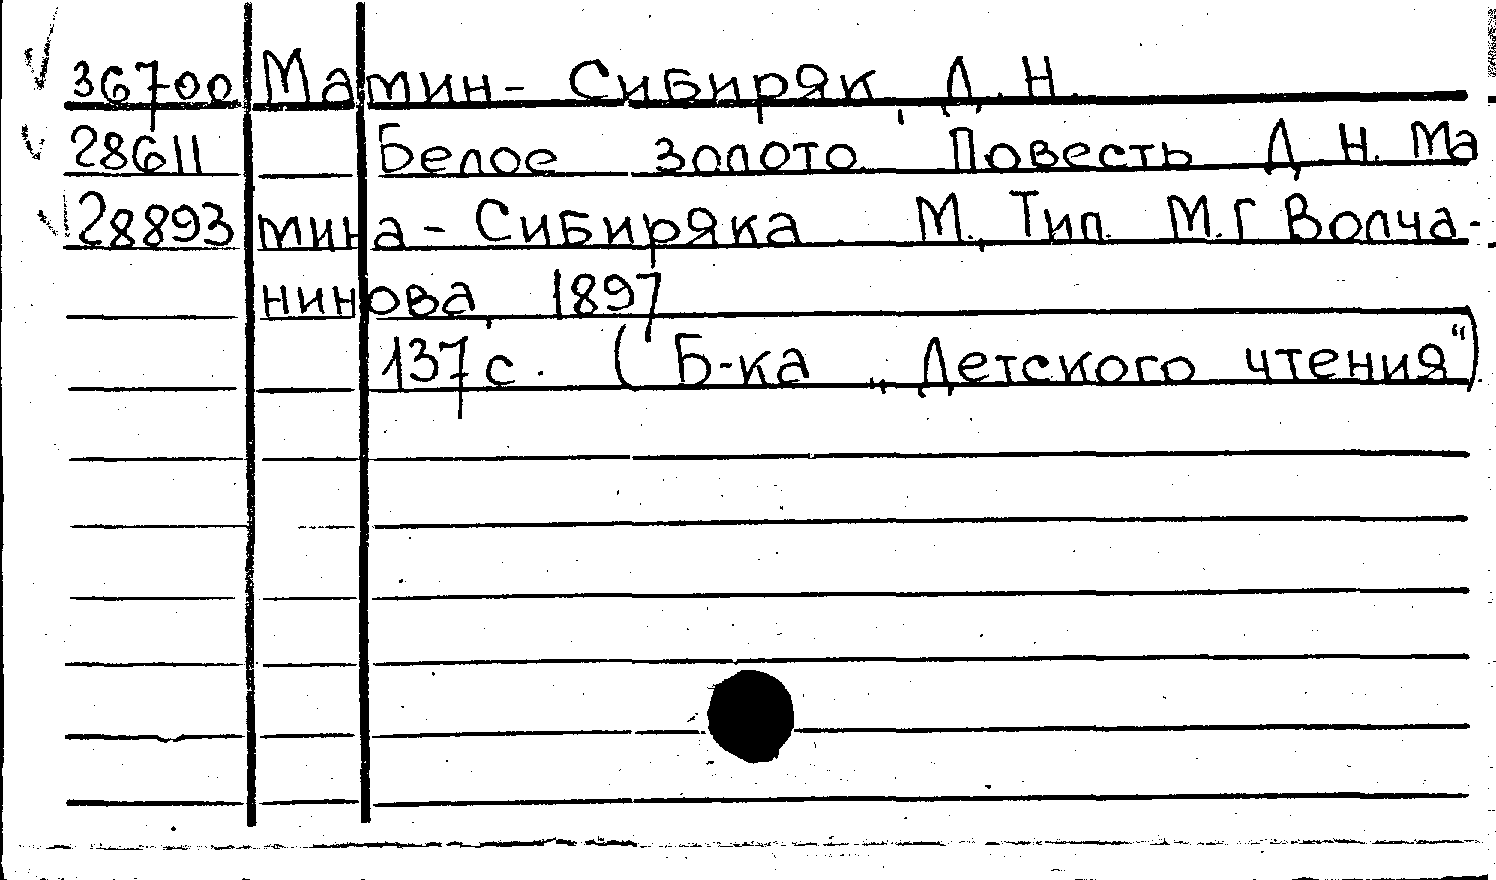 36700 Мамин-Сибиряк, Д. Н.
28611 Белое золото. Повесть Д. Н. Ма
28893 мина-Сибиряка. М., Тип. М.Г Волча-
нинова, 1897
137 с. (Б-ка „Детского чтения“)